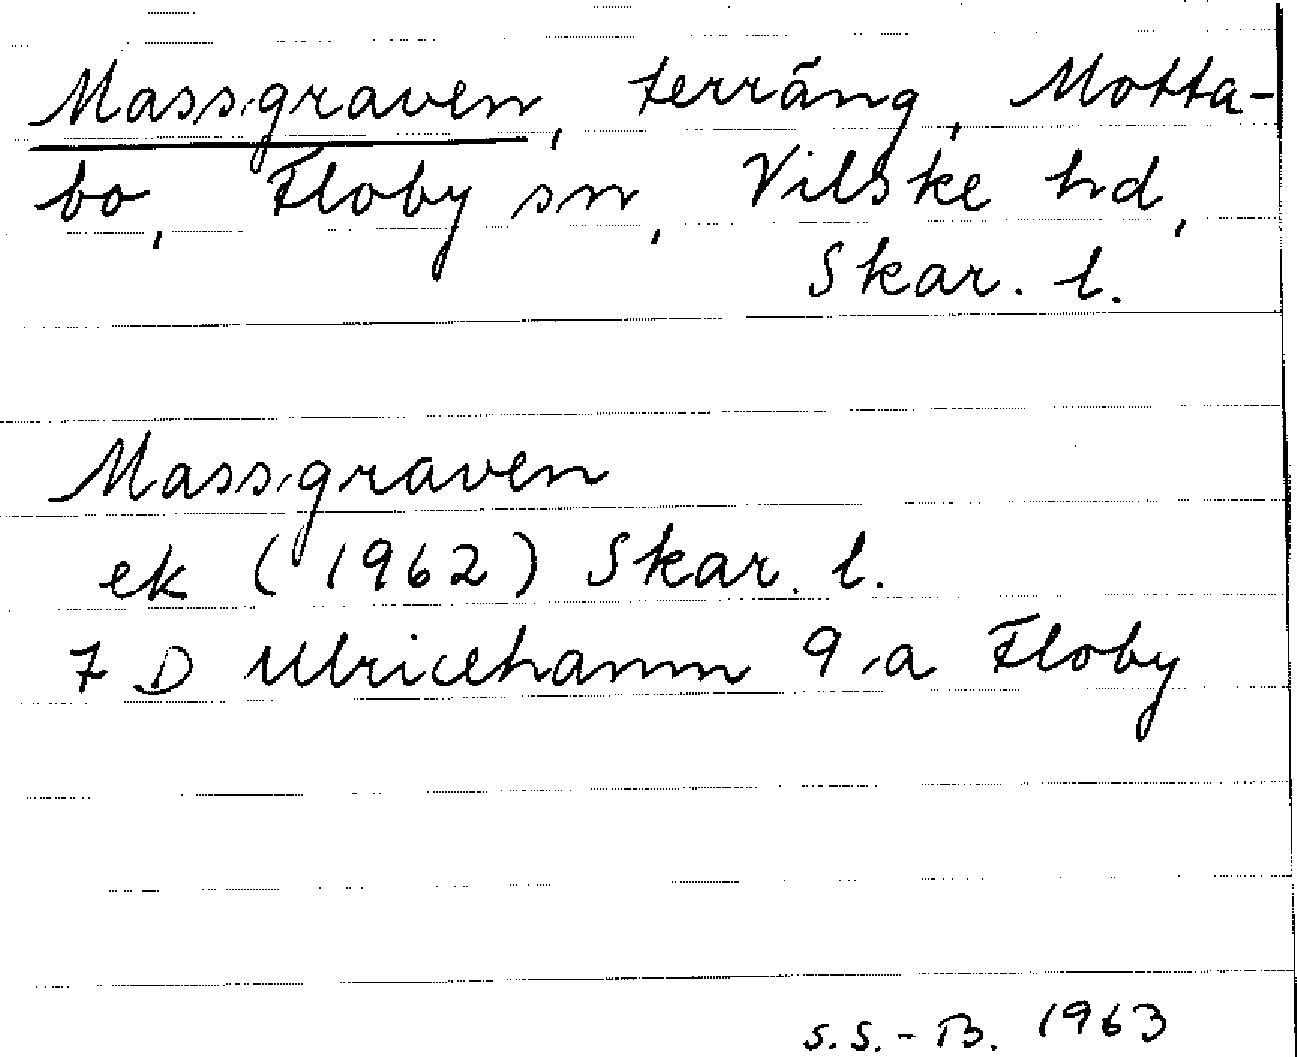 Massgraven, terräng, Motta-
bo, Floby sn, Vilske hd,
Skar. l.
Massgraven
ek (1962) Skar. l.
7 D Ulricehamn 9 a Floby
S.S.-B. 1963